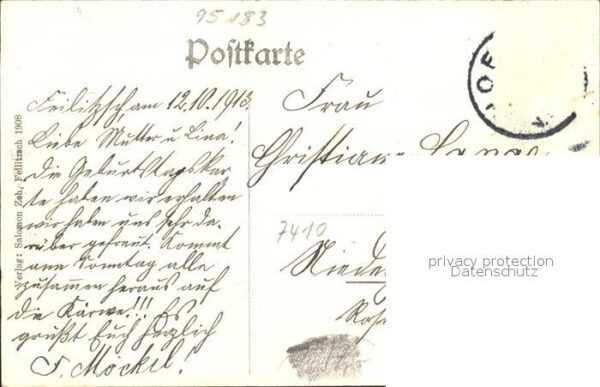 95183
Postkarte
HOF
Feilitzsch, am 12.10.1913.
Liebe Mutter u Lina!
Die Geburtstagskar
te haben wir erhalten
wir haben uns sehr da
rüber gefreut. Kommt
am Sonntag alle
zusammen heraus auf
die Kärwe!!! Es
grüßt Euch herzlich
F. Möckel!
Verlag: Salomon Zeh, Feilitzsch 1908
Frau
Christiane
7410
Niede
privacy protection
Datenschutz